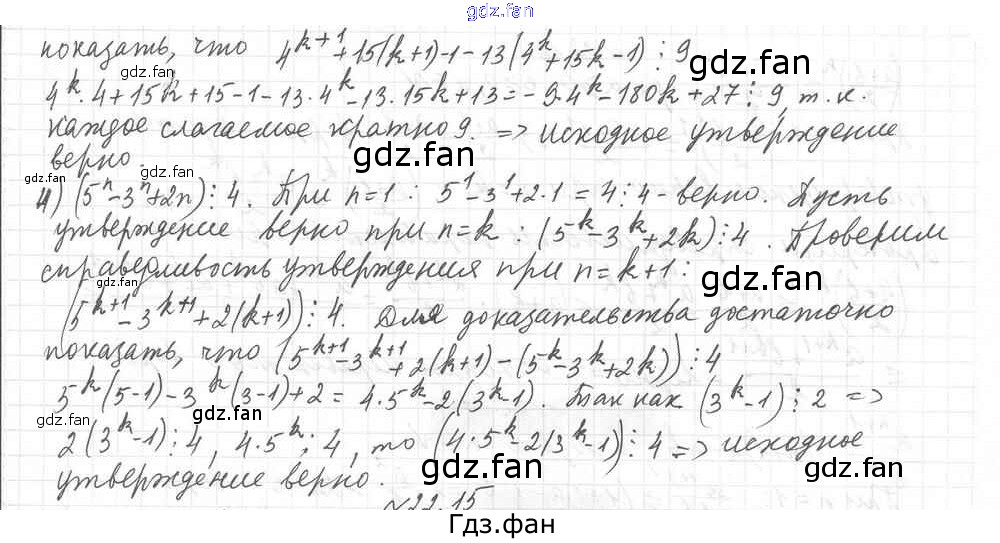 gdz.fan
показать, что 4^{k+1}+15(k+1)-1-13(4^k+15k-1)⋮9
gdz.fan gdz.fan
4^k·4+15k+15-1-13·4^k-13·15k+13=-9·4^k-180k+27⋮9, т.к.
каждое слагаемое кратно 9. => исходное утверждение
gdz.fan gdz.fan
верно.
gdz.fan
4) (5^n-3^n+2n)⋮4. При n=1: 5^1-3^1+2·1=4⋮4-верно. Пусть
утверждение верно при n=k: (5^k-3^k+2k)⋮4. Проверим
справедливость утверждения при n=k+1:
gdz.fan gdz.fan
(5^{k+1}-3^{k+1}+2(k+1))⋮4. Для доказательства достаточно
показать, что (5^{k+1}-3^{k+1}+2(k+1)-(5^k-3^k+2k))⋮4
gdz.fan
5^k(5-1)-3^k(3-1)+2=4·5^k-2(3^k-1). Так как (3^k-1)⋮2 =>
gdz.fan gdz.fan
2(3^k-1)⋮4, 4·5^k⋮4, то (4·5^k-2(3^k-1))⋮4 => исходное
gdz.fan gdz.fan
утверждение верно.
№22.15
Гдз.фан